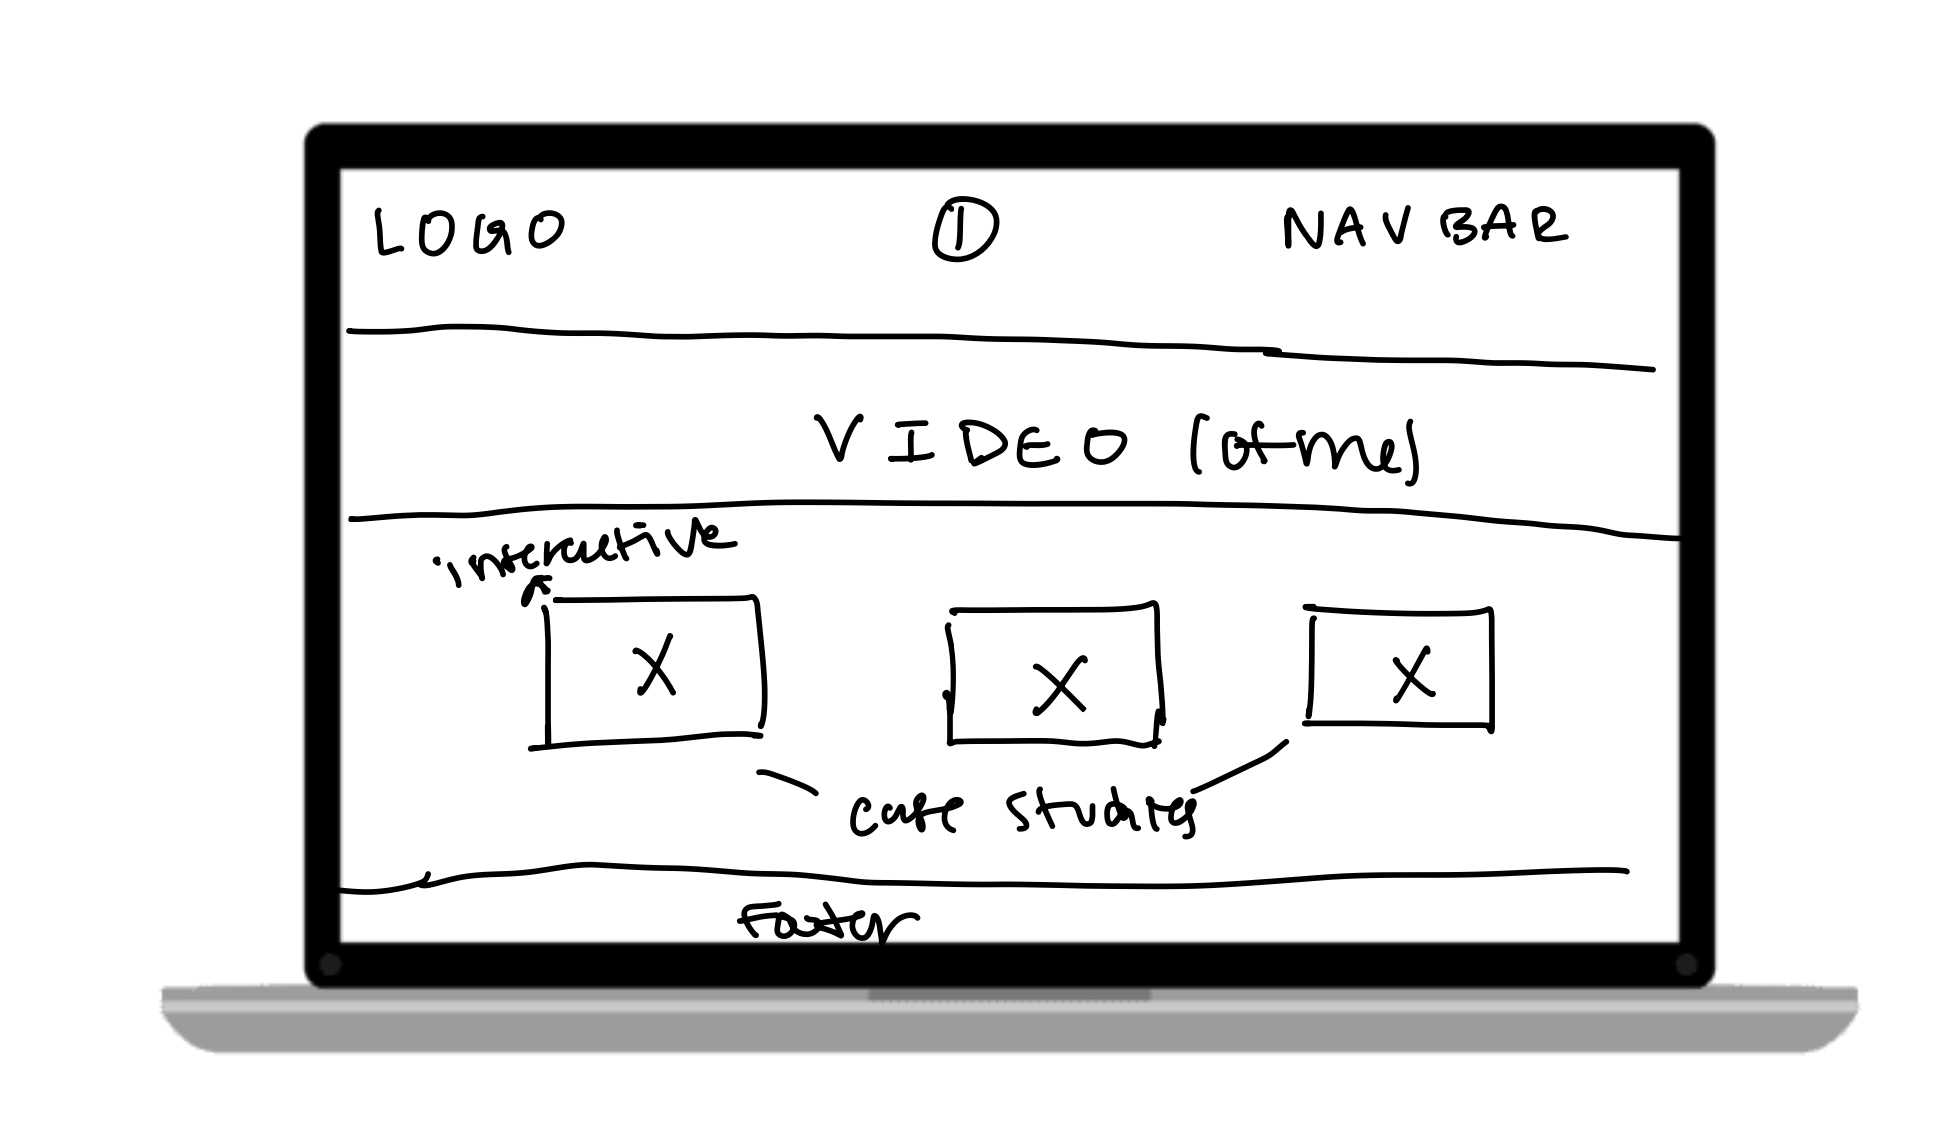 LOGO 1 NAV BAR
VIDEO (of me)
interactive
X X X
case studies
Footer